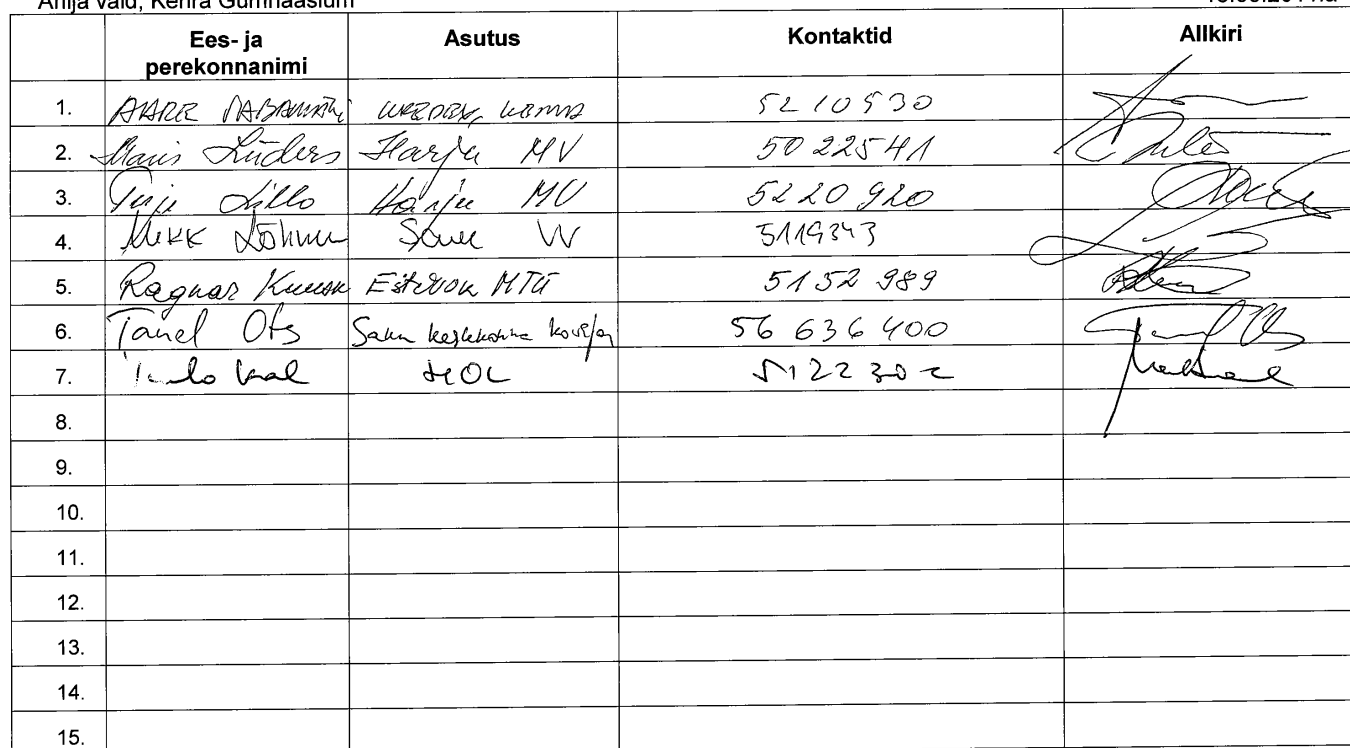 Anija vald, Kehra Gümnaasium
Ees- ja perekonnanimi Asutus Kontaktid Allkiri
1. AARE 5210530
2. Maris Lüders Harju MV 5022541
3. Terje Lillo Harju MV 5220920
4. Mikk Lõhmus Saue VV 5119343
5. Ragnar Kuusk EstDoor MTÜ 5152 989
6. Tanel Ots Saku 56 636 400
7. HOL 5122302
8.
9.
10.
11.
12.
13.
14.
15.